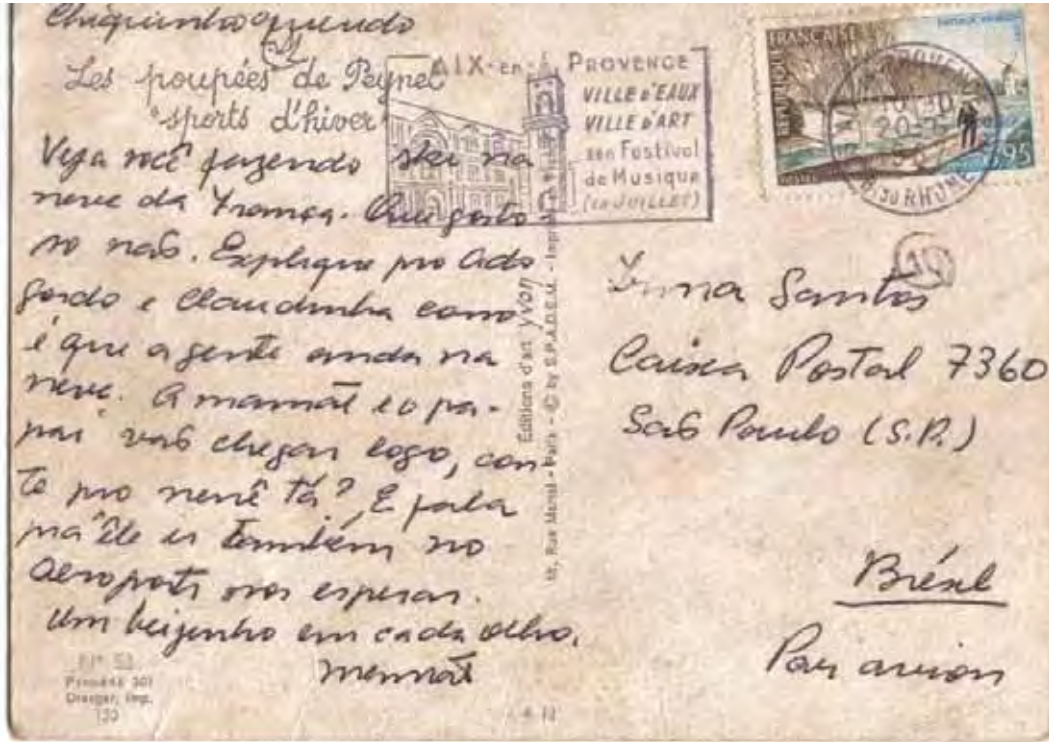 Chiquinho querido
Les poupées de Peynet
"sports d'hiver"
Veja você fazendo ski na
neve da França. Que gosto-
so não. Explique pro Ado
gordo e Claudinha como
é que a gente anda na
neve. A mamãe e o pa-
pai vão chegar logo, con-
te pro nenê tá? E fala
prá êle ir também no
aeroporto nos esperar.
Um beijinho em cada olho.
mamãe
N° 53
Draeger, Imp.
AIX-en-PROVENCE
VILLE D'EAUX
VILLE D'ART
son Festival
de Musique
(en JUILLET)
Editions d'art yvon
15, Rue Martel - Paris - © by S.P.A.D.E.M. -
REPUBLIQUE FRANÇAISE
0,95
Irma Santos
Caixa Postal 7360
São Paulo (S.P.)
Brésil
Par avion